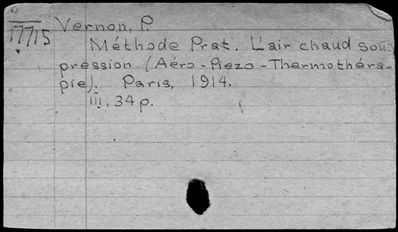 17715
Vernon, P.
Méthode Prat. L'air chaud sous
pression (Aéro-Piezo-Thermothéra-
pie). Paris, 1914.
iii, 34 p.